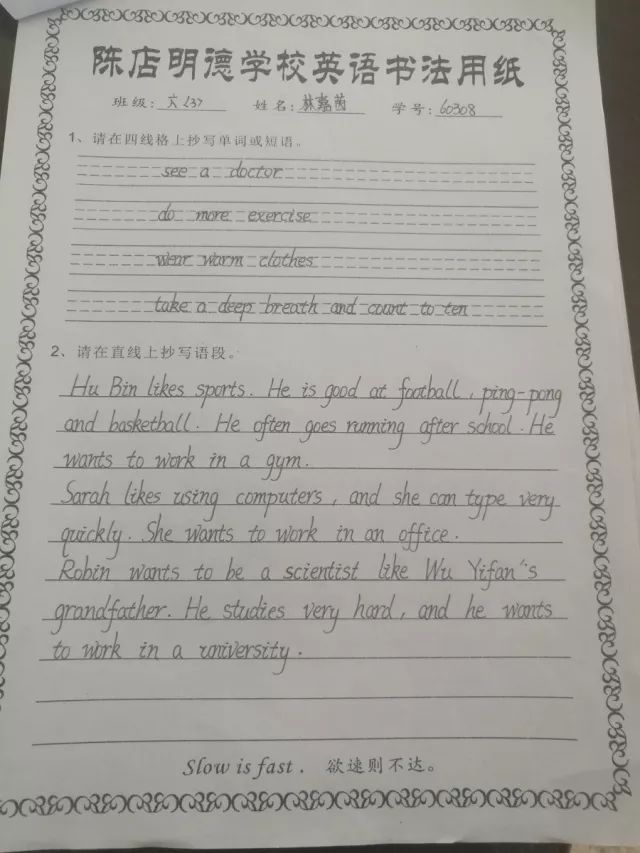 陈店明德学校英语书法用纸
班级: 六<37> 姓名: 林嘉茵 学号: 60308
1、请在四线格上抄写单词或短语。
see a doctor
do more exercise
wear warm clothes
take a deep breath and count to ten
2、请在直线上抄写语段。
Hu Bin likes sports. He is good at football, ping-pong
and basketball. He often goes running after school. He
wants to work in a gym.
Sarah likes using computers, and she can type very
quickly. She wants to work in an office.
Robin wants to be a scientist like Wu Yifan's
grandfather. He studies very hard, and he wants
to work in a university.
Slow is fast. 欲速则不达。